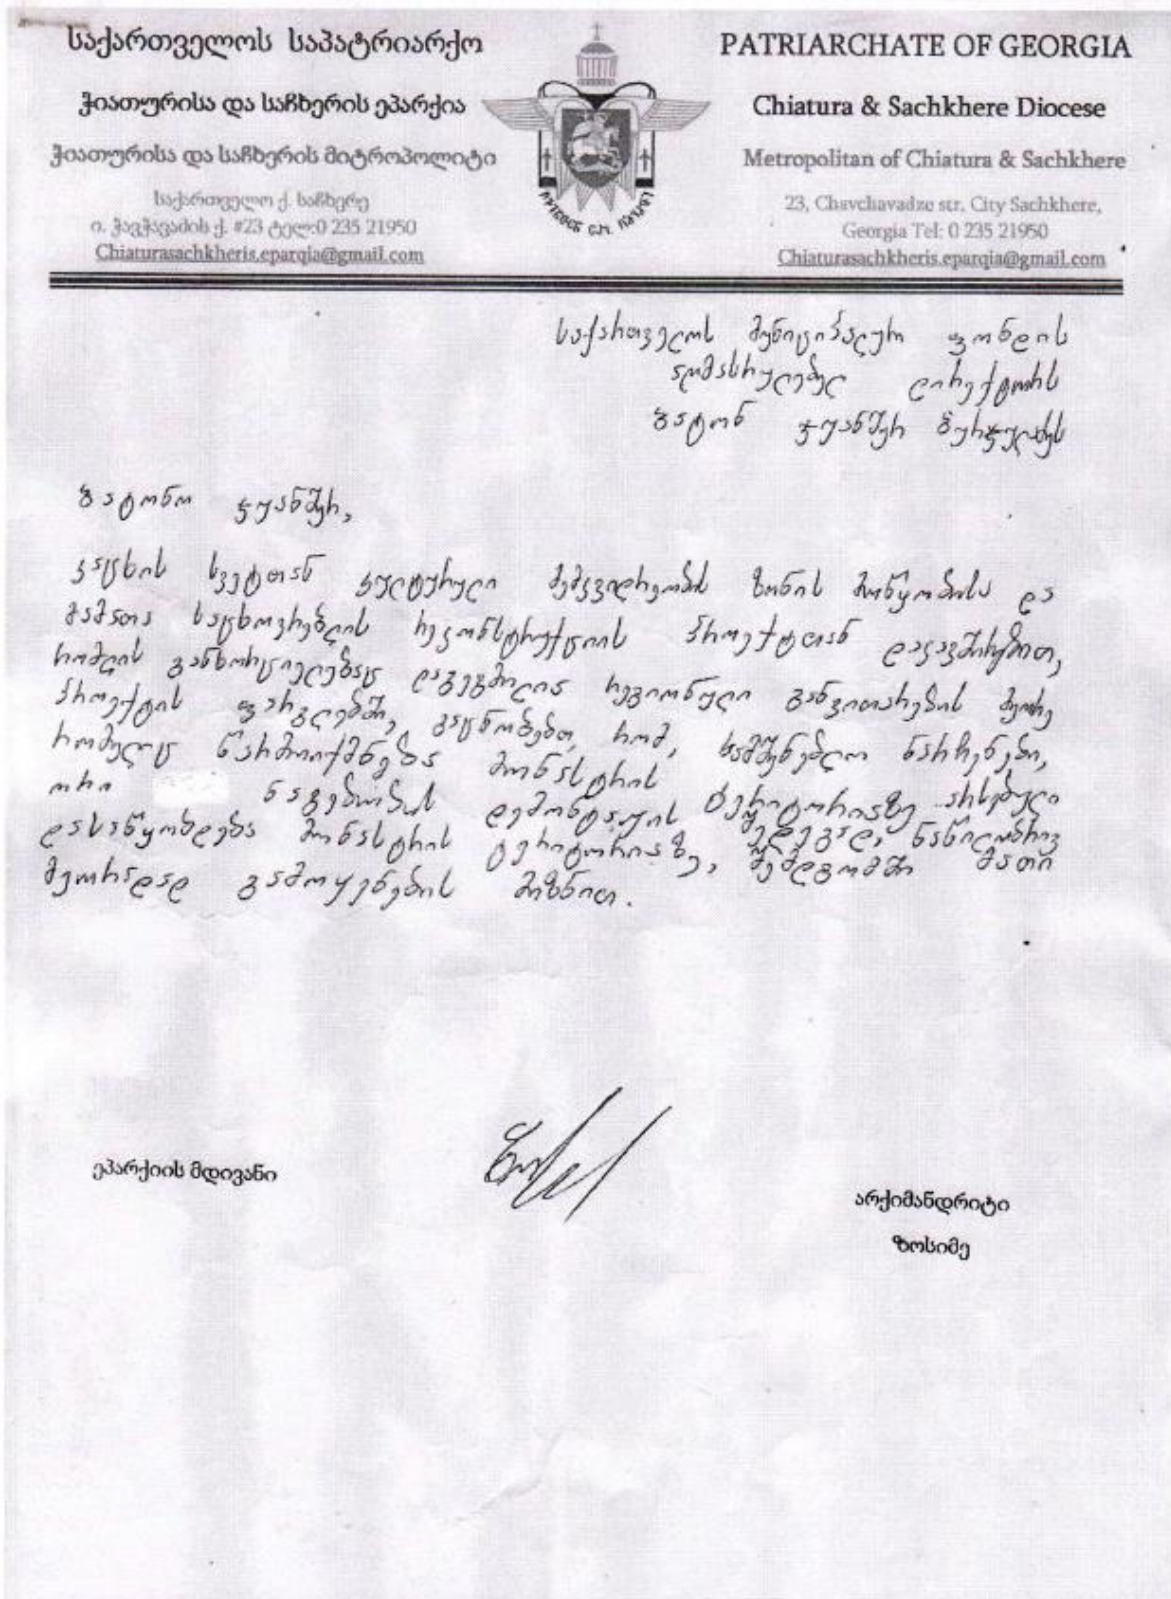 საქართველოს საპატრიარქო
ჭიათურისა და საჩხერის ეპარქია
ჭიათურისა და საჩხერის მიტროპოლიტი
საქართველო ქ. საჩხერე
ი. ჭავჭავაძის ქ. #23 ტელ:0 235 21950
Chiaturasachkheris.eparqia@gmail.com
PATRIARCHATE OF GEORGIA
Chiatura & Sachkhere Diocese
Metropolitan of Chiatura & Sachkhere
23, Chavchavadze str. City Sachkhere,
Georgia Tel: 0 235 21950
Chiaturasachkheris.eparqia@gmail.com
საქართველოს მუნიციპალურ ფონდის
აღმასრულებელ დირექტორს
ბატონ ჯუანშერ ბურჭულაძეს
ბატონო ჯუანშერ,
კაცხის სვეტთან კულტურული მემკვიდრეობის ზონის მოწყობისა და
მამათა საცხოვრებლის რეკონსტრუქციის პროექტთან დაკავშირებით,
რომლის განხორციელებაც დაგეგმილია რეგიონული განვითარების მეორე
პროექტის ფარგლებში, გაცნობებთ, რომ, სამშენებლო ნარჩენები,
რომელიც წარმოიქმნება მონასტრის ტერიტორიაზე არსებული
ორი ნაგებობის დემონტაჟის შედეგად, ნაწილობრივ
დასაწყობდება მონასტრის ტერიტორიაზე, შემდგომში მათი
მეორადად გამოყენების მიზნით.
ეპარქიის მდივანი
არქიმანდრიტი
ზოსიმე